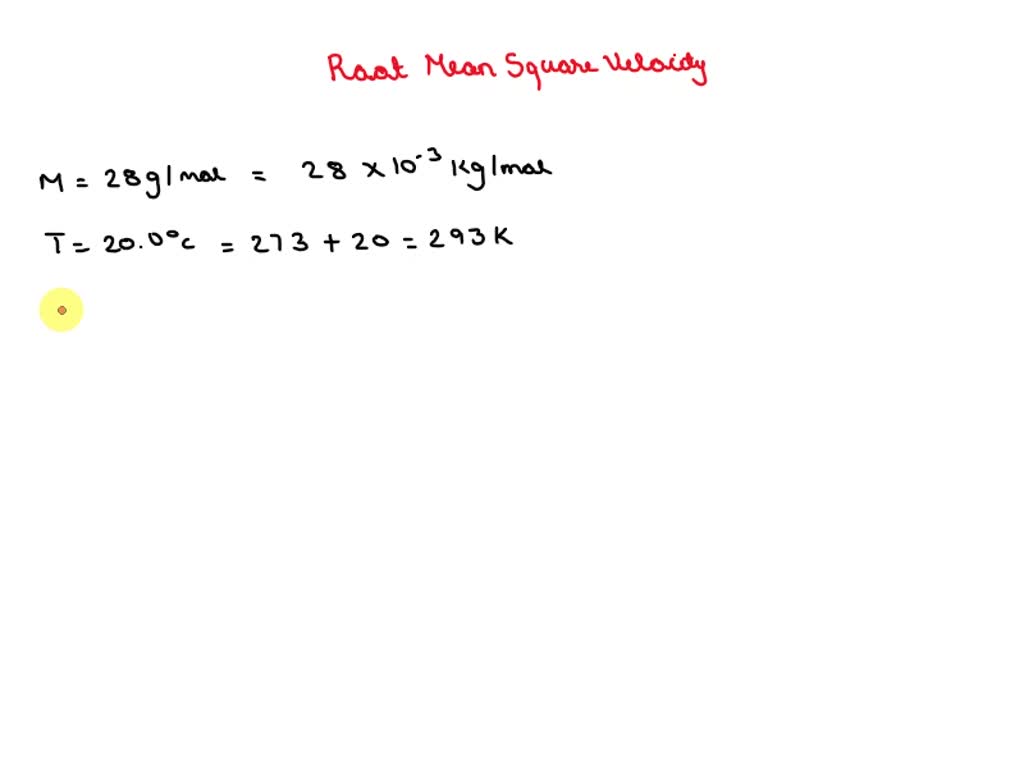 Root Mean Square Velocity
M = 28g/mol = 28 × 10⁻³ Kg/mol
T = 20.0°c = 273 + 20 = 293K